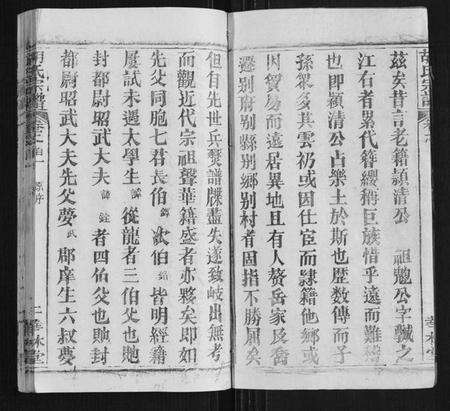 胡氏宗譜
茲矣昔言老籍潁清公 祖勉公字誠之
江右者累代簪纓稱巨族惜乎遠而難稽
也即潁清公占樂土於斯也歷數傳而子
孫眾多其雲礽或因仕宦而隸籍他鄉或
因貿易而遠居異地且有人贅岳家及喬
遷別府別縣別鄉別村者固指不勝屈矣
但自先世兵燹譜牒盡失遂致岐出無考
而觀近代宗祖聲華籍盛者亦夥矣即如
先父同胞七君長伯 次伯 皆明經籍
屢試未遇太學生 從龍者三伯父也貤
封都尉昭武大夫 者四伯父也貤封
都尉昭武大夫先父夢 郡庠生六叔夢
胡氏宗譜
卷
二
華林堂